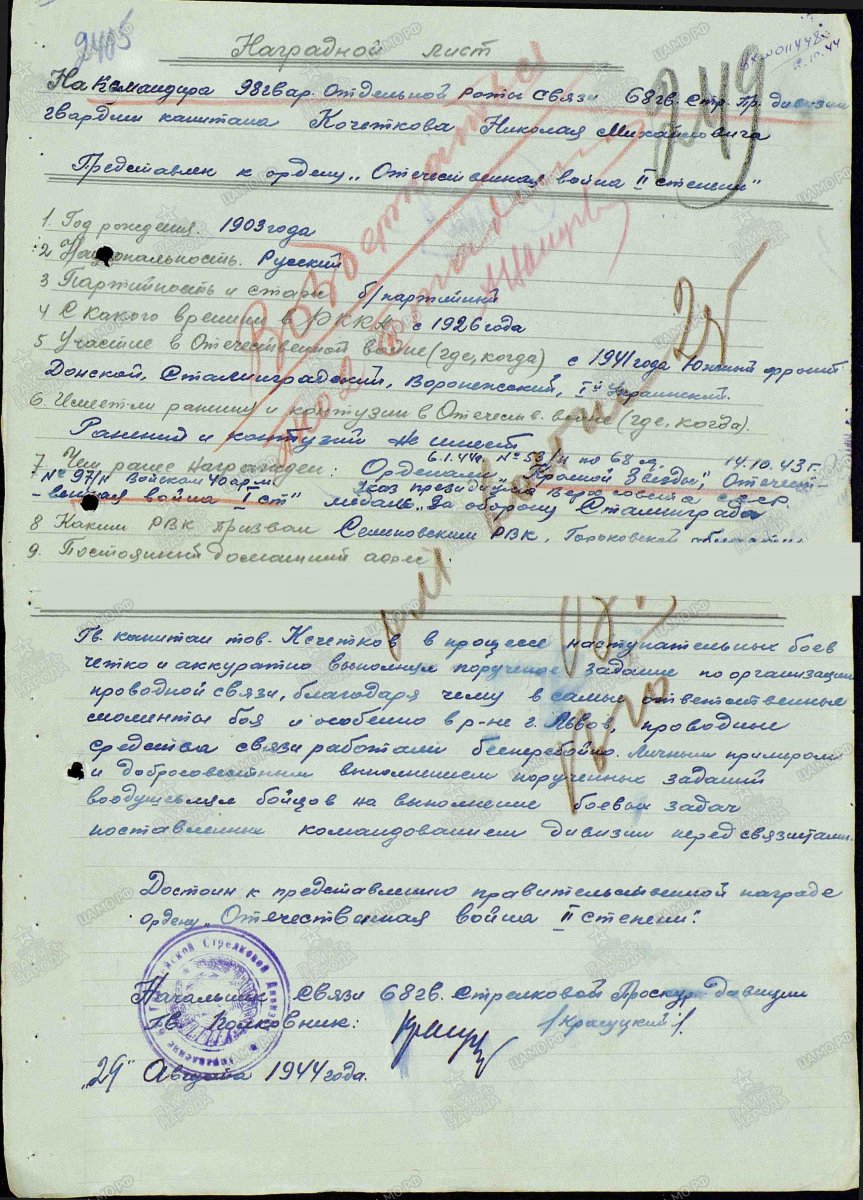 2405
Наградной лист
249
На Командира 98 гвар. Отдельной роты связи 68 гв. Стр. Пр. дивизии
гвардии капитана Кочеткова Николая Михайловича
Представлен к ордену „Отечественная война II степени"
1. Год рождения. 1903 года
2 Национальность. Русский
3 Партийность и стаж б/партийный
4 С какого времени в РККА с 1926 года
5 Участие в Отечественной войне (где, когда) с 1941 года Южный фронт
Донской, Сталинградский, Воронежский, Iй Украинский.
6. Имеет-ли ранения и контузии в Отечеств. войне (где, когда).
Ранений и контузий не имеет
7 Чем ранее награжден: Орденами „Красной Звезды", Отечест-
6.1.44г. № 59/н по 68 14.10.43 г.
№ 97/н Войскам 40 арм. Указ президиума верх совета СССР
-венная война I ст" медаль „За оборону Сталинграда
8 Каким РВК призван Семеновским РВК, Горьковской области
9. Постоянный домашний адрес:
Гв. капитан тов. Кочетков в процессе наступательных боев
четко и аккуратно выполнял порученое задание по организации
проводной связи, благодаря чему в самые ответственные
моменты боя и особенно в р-не г. Львов, проводные
средства связи работали бесперебойно. Личным примером
и добросовестным выполнением порученных заданий
воодушевлял бойцов на выполнение боевых задач
поставленных командованием дивизии перед связистами.
Достоин к представлению правительственной награде
ордену „Отечественная война II степени".
Начальник Связи 68 гв. Стрелковой Проскур. дивизии
Гв. Полковник: /Красуцкий/.
„29" Августа 1944 года.
Воздержаться
ЦАМО.РФ
ПАМЯТЬ НАРОДА